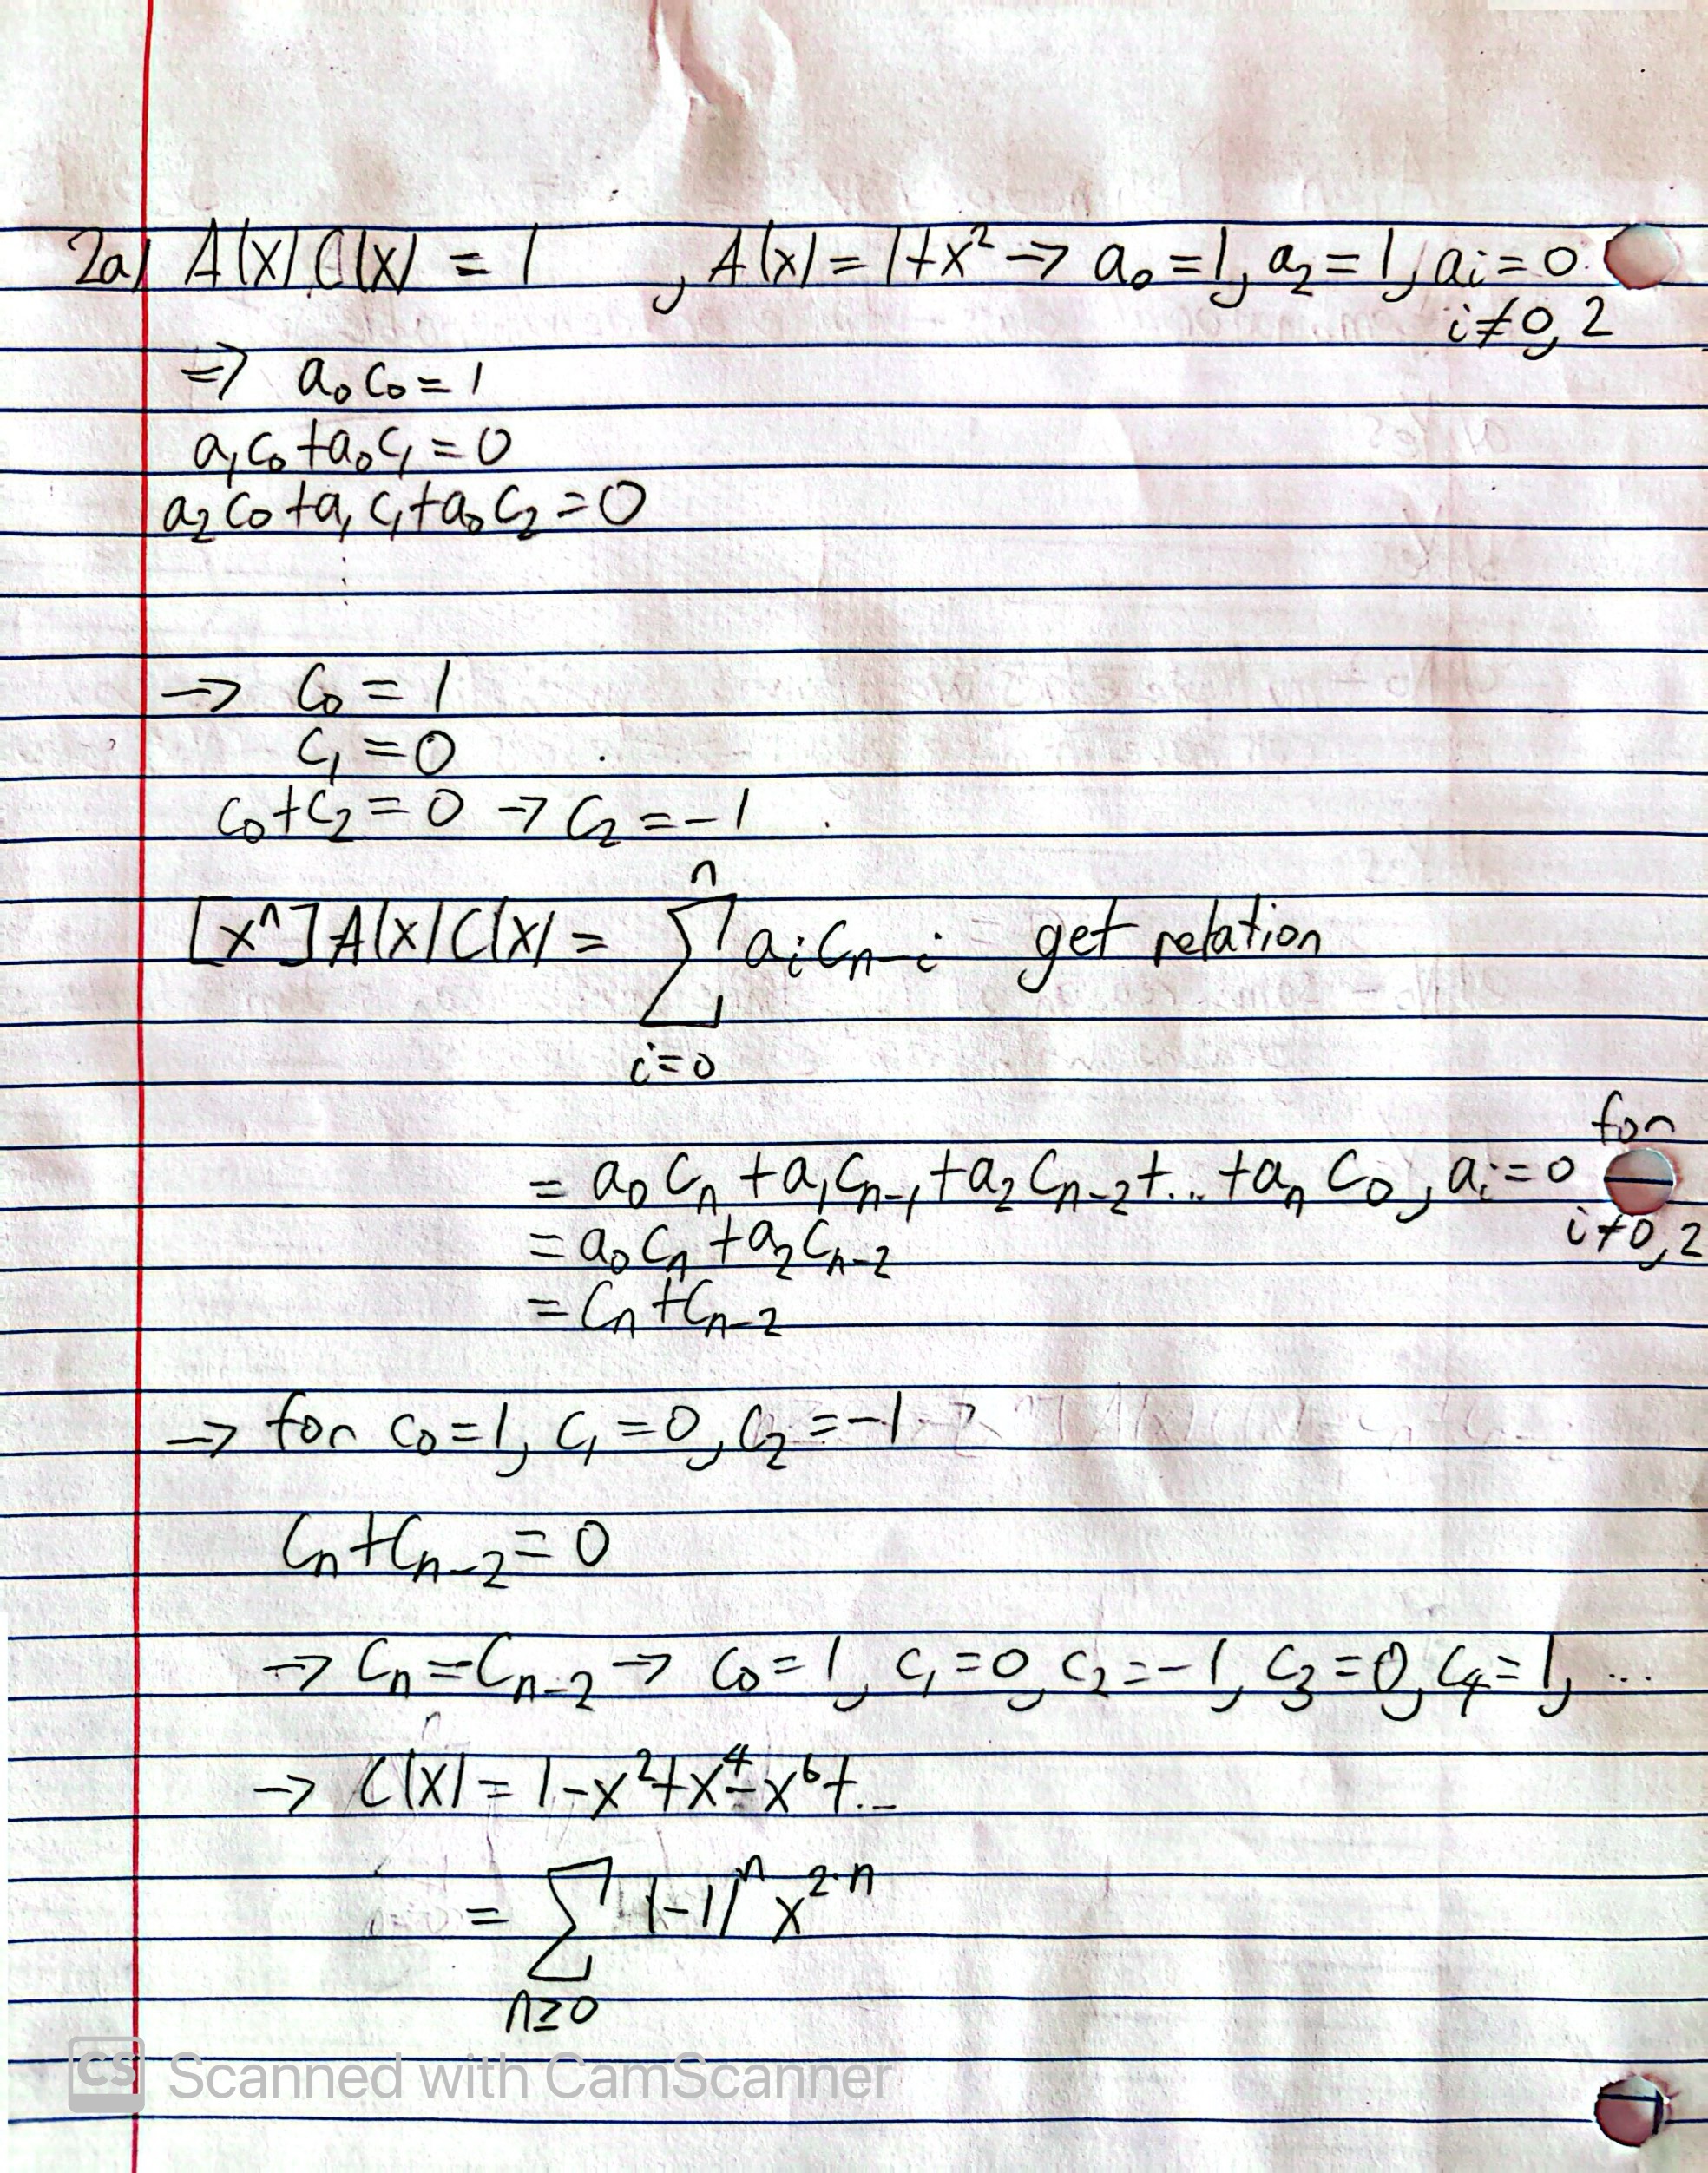 2a) A(x)C(x) = 1 , A(x) = 1+x² → a₀ = 1, a₂ = 1, aᵢ = 0
i ≠ 0, 2
⇒ a₀c₀ = 1
a₁c₀ + a₀c₁ = 0
a₂c₀ + a₁c₁ + a₀c₂ = 0
⋮
→ c₀ = 1
c₁ = 0
c₀ + c₂ = 0 → c₂ = -1
[xⁿ]A(x)C(x) = ∑ᵢ₌₀ⁿ aᵢcₙ₋ᵢ get relation
= a₀cₙ + a₁cₙ₋₁ + a₂cₙ₋₂ + ... + aₙc₀, aᵢ = 0 for i ≠ 0, 2
= a₀cₙ + a₂cₙ₋₂
= cₙ + cₙ₋₂
→ for c₀ = 1, c₁ = 0, c₂ = -1
cₙ + cₙ₋₂ = 0
→ cₙ = -cₙ₋₂ → c₀ = 1, c₁ = 0, c₂ = -1, c₃ = 0, c₄ = 1, ...
→ C(x) = 1 - x² + x⁴ - x⁶ + ...
= ∑ₙ≥₀ (-1)ⁿ x²·ⁿ
CS Scanned with CamScanner